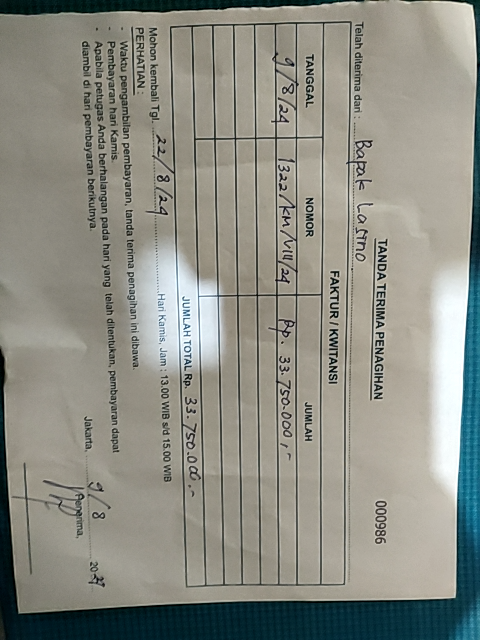 TANDA TERIMA PENAGIHAN
000986
Telah diterima dari : Bapak Lasino
FAKTUR / KWITANSI
TANGGAL NOMOR JUMLAH
9/8/24 1322/KM/VIII/24 Rp. 33.750.000,-
JUMLAH TOTAL Rp. 33.750.000.-
Mohon kembali Tgl. 22/8/24 Hari Kamis, Jam : 13.00 WIB s/d 15.00 WIB
PERHATIAN :
- Waktu pengambilan pembayaran, tanda terima penagihan ini dibawa.
- Pembayaran hari Kamis.
- Apabila petugas Anda berhalangan pada hari yang telah ditentukan, pembayaran dapat
diambil di hari pembayaran berikutnya.
Jakarta, 9/8 2024
Penerima,